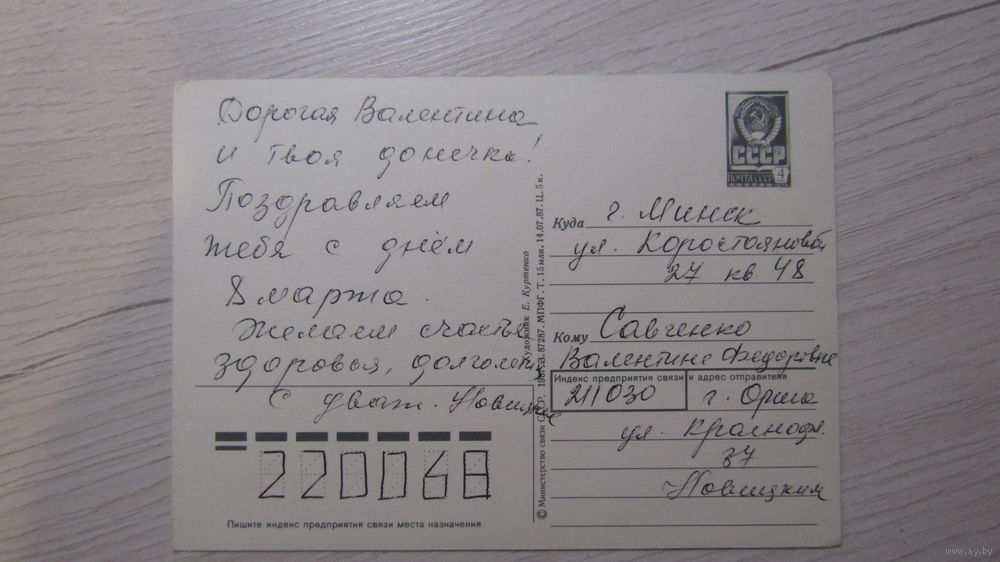 Дорогая Валентина
и твоя донечка!
Поздравляем
тебя с днём
8 марта.
Желаем счастья
здоровья, долголетия
С уваж. Новицкие
220068
Пишите индекс предприятия связи места назначения
© Министерство связи СССР. 1987. З. 87287. МПФГ. Т. 15 млн. 14.07.87. Ц. 5 к.
Художник Е. Куртенко
СССР
ПОЧТА СССР 4
Куда г. Минск
ул. Коростояновой
27 кв. 48
Кому Савченко
Валентине Федоровне
Индекс предприятия связи и адрес отправителя
211030 г. Орша
ул. Краснофл.
37
Новицким
www.ay.by